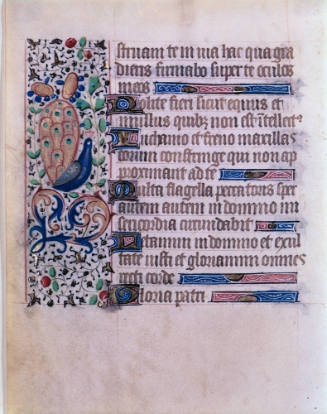 struam te in uia hac qua gra
dieris firmabo super te oculos
meos
Nolite fieri sicut equus et
mulus quibȝ non est ītellecꝰ
In chamo et freno maxillas
eorum constringe qui non ap
proximant ad te
Multa flagella peccatoris sper
antem autem in domino mi
sericordia circumdabit
Letamini in domino et exul
tate iusti et gloriamini omnes
recti corde
Gloria patri